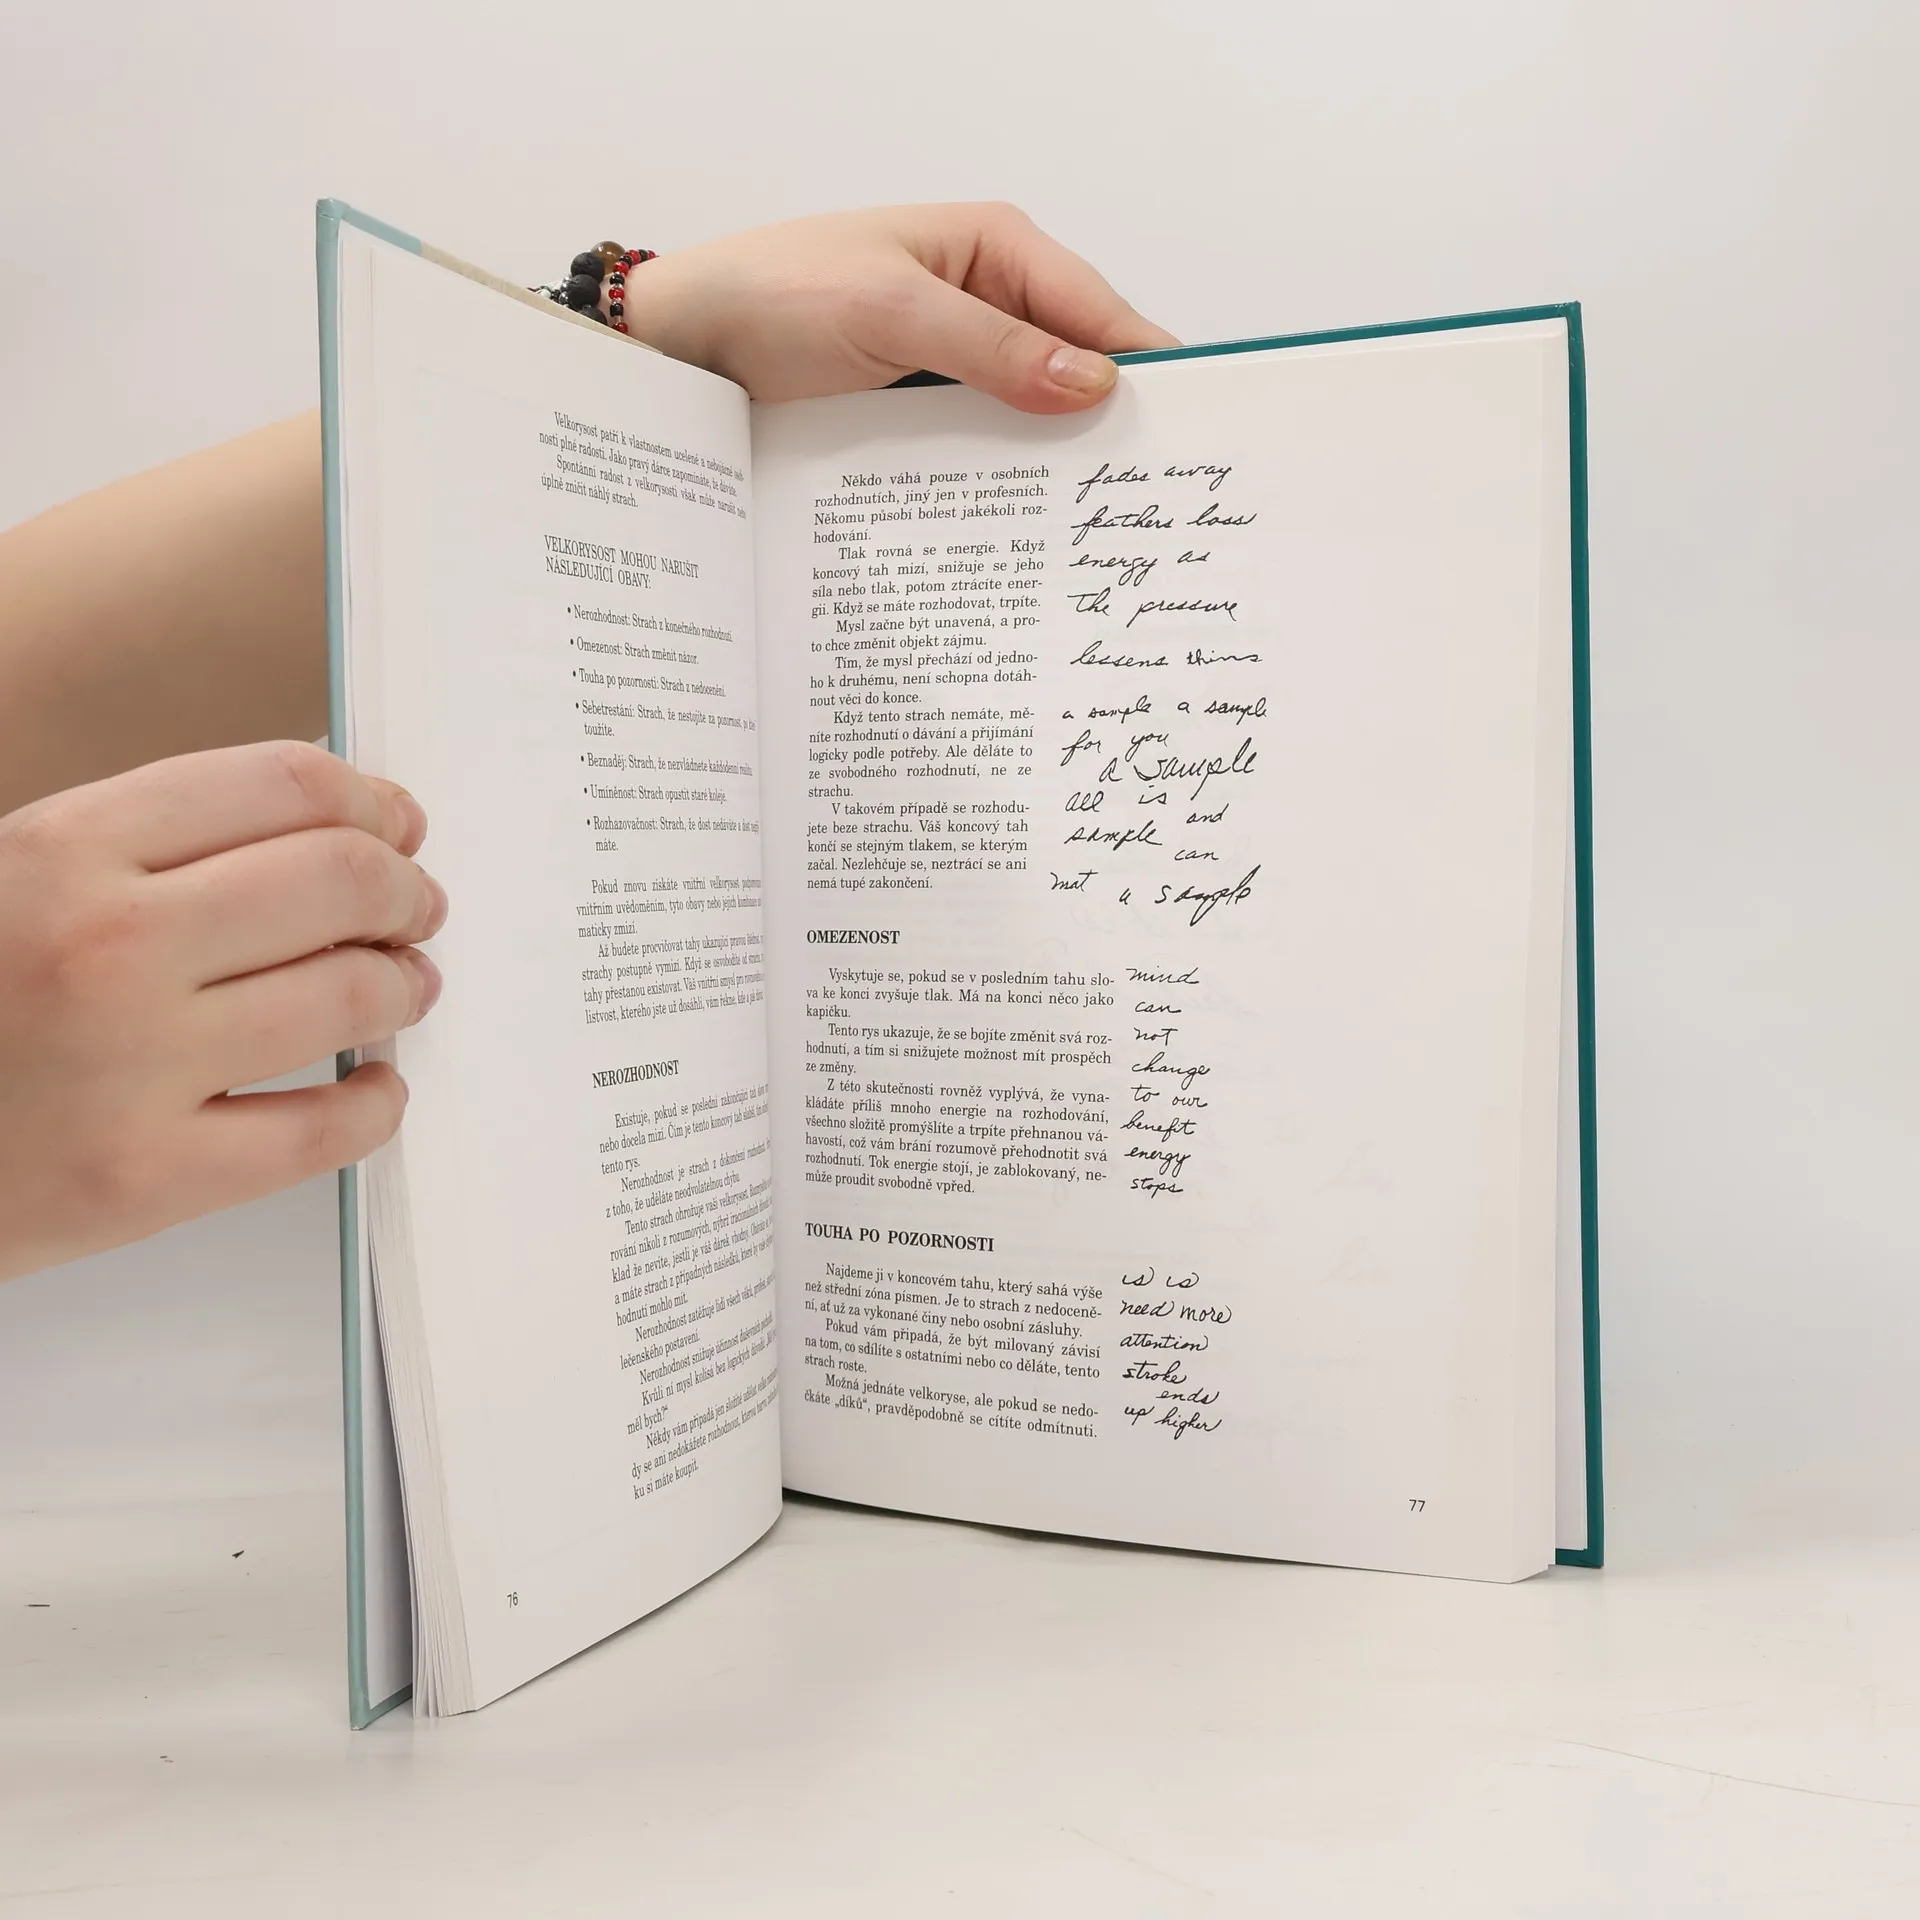 Velkorysost patří k vlastnostem ucelené a nebojácné osob-
nosti plné radosti. Jako pravý dárce zapomínáte, že dáváte.
Spontánní radost z velkorysosti však může narušit nebo
úplně zničit náhlý strach.
VELKORYSOST MOHOU NARUŠIT
NÁSLEDUJÍCÍ OBAVY:
• Nerozhodnost: Strach z konečného rozhodnutí.
• Omezenost: Strach změnit názor.
• Touha po pozornosti: Strach z nedocenění.
• Sebetrestání: Strach, že nestojíte za pozornost, po
toužíte.
• Beznaděj: Strach, že nezvládnete každodenní realitu.
• Umíněnost: Strach opustit staré koleje.
• Rozhazovačnost: Strach, že dost nedáváte a dost
máte.
Pokud znovu získáte vnitřní velkorysost
vnitřním uvědoměním, tyto obavy nebo jejich kombinace
maticky zmizí.
Až budete procvičovat tahy ukazující pravou
strachy postupně vymizí. Když se osvobodíte od
tahy přestanou existovat. Váš vnitřní smysl pro
listvost, kterého jste už dosáhli, vám řekne, kde a
NEROZHODNOST
Existuje, pokud se poslední zakončující tah
nebo docela mizí. Čím je tento koncový tah slabší, tím
tento rys.
Nerozhodnost je strach z dokončení rozhodnutí,
z toho, že uděláte neodvolatelnou chybu.
Tento strach ohrožuje vaši velkorysost.
rování nikoli z rozumových, nýbrž iracionálních
klad že nevíte, jestli je váš dárek vhodný.
a máte strach z případných následků, které by
hodnutí mohlo mít.
Nerozhodnost zatěžuje lidi všech věků,
lečenského postavení.
Nerozhodnost snižuje účinnost duševních
Kvůli ní mysl kolísá bez logických důvodů.
měl bych?"
Někdy vám připadá jen složité udělat
dy se ani nedokážete rozhodnout, kterou barvu
ku si máte koupit.
76
Někdo váhá pouze v osobních
rozhodnutích, jiný jen v profesních.
Někomu působí bolest jakékoli roz-
hodování.
Tlak rovná se energie. Když
koncový tah mizí, snižuje se jeho
síla nebo tlak, potom ztrácíte ener-
gii. Když se máte rozhodovat, trpíte.
Mysl začne být unavená, a pro-
to chce změnit objekt zájmu.
Tím, že mysl přechází od jedno-
ho k druhému, není schopna dotáh-
nout věci do konce.
Když tento strach nemáte, mě-
níte rozhodnutí o dávání a přijímání
logicky podle potřeby. Ale děláte to
ze svobodného rozhodnutí, ne ze
strachu.
V takovém případě se rozhodu-
jete beze strachu. Váš koncový tah
končí se stejným tlakem, se kterým
začal. Nezlehčuje se, neztrácí se ani
nemá tupé zakončení.
fades away
feathers loss
energy as
the pressure
lessens thins
a sample a sample
for you
a sample
all is
and
sample
can
mat
a sample
OMEZENOST
Vyskytuje se, pokud se v posledním tahu slo-
va ke konci zvyšuje tlak. Má na konci něco jako
kapičku.
Tento rys ukazuje, že se bojíte změnit svá roz-
hodnutí, a tím si snižujete možnost mít prospěch
ze změny.
Z této skutečnosti rovněž vyplývá, že vyna-
kládáte příliš mnoho energie na rozhodování,
všechno složitě promýšlíte a trpíte přehnanou vá-
havostí, což vám brání rozumově přehodnotit svá
rozhodnutí. Tok energie stojí, je zablokovaný, ne-
může proudit svobodně vpřed.
mind
can
not
change
to our
benefit
energy
stops
TOUHA PO POZORNOSTI
Najdeme ji v koncovém tahu, který sahá výše
než střední zóna písmen. Je to strach z nedoceně-
ní, ať už za vykonané činy nebo osobní zásluhy.
Pokud vám připadá, že být milovaný závisí
na tom, co sdílíte s ostatními nebo co děláte, tento
strach roste.
Možná jednáte velkoryse, ale pokud se nedo-
čkáte „díků“, pravděpodobně se cítíte odmítnuti.
is is
need more
attention
stroke
ends
up higher
77